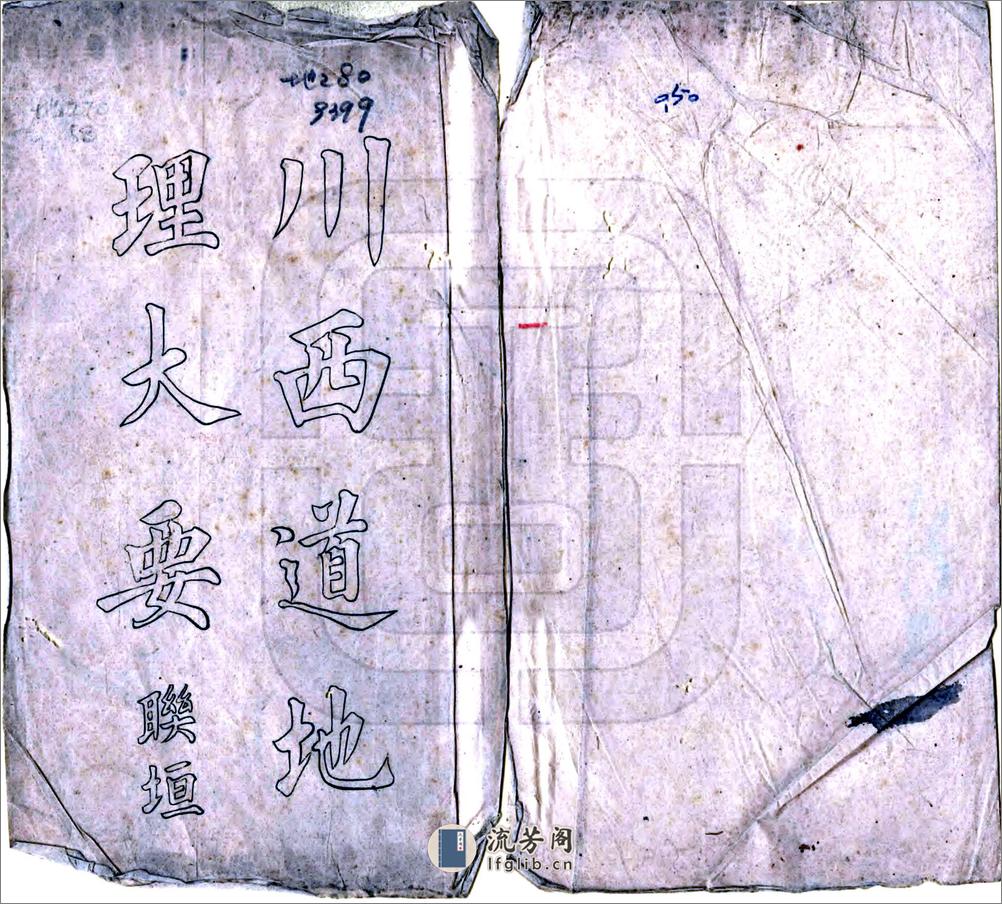 川西道地
理大要
聯垣
地280
3399
950
流芳阁
lfglib.cn